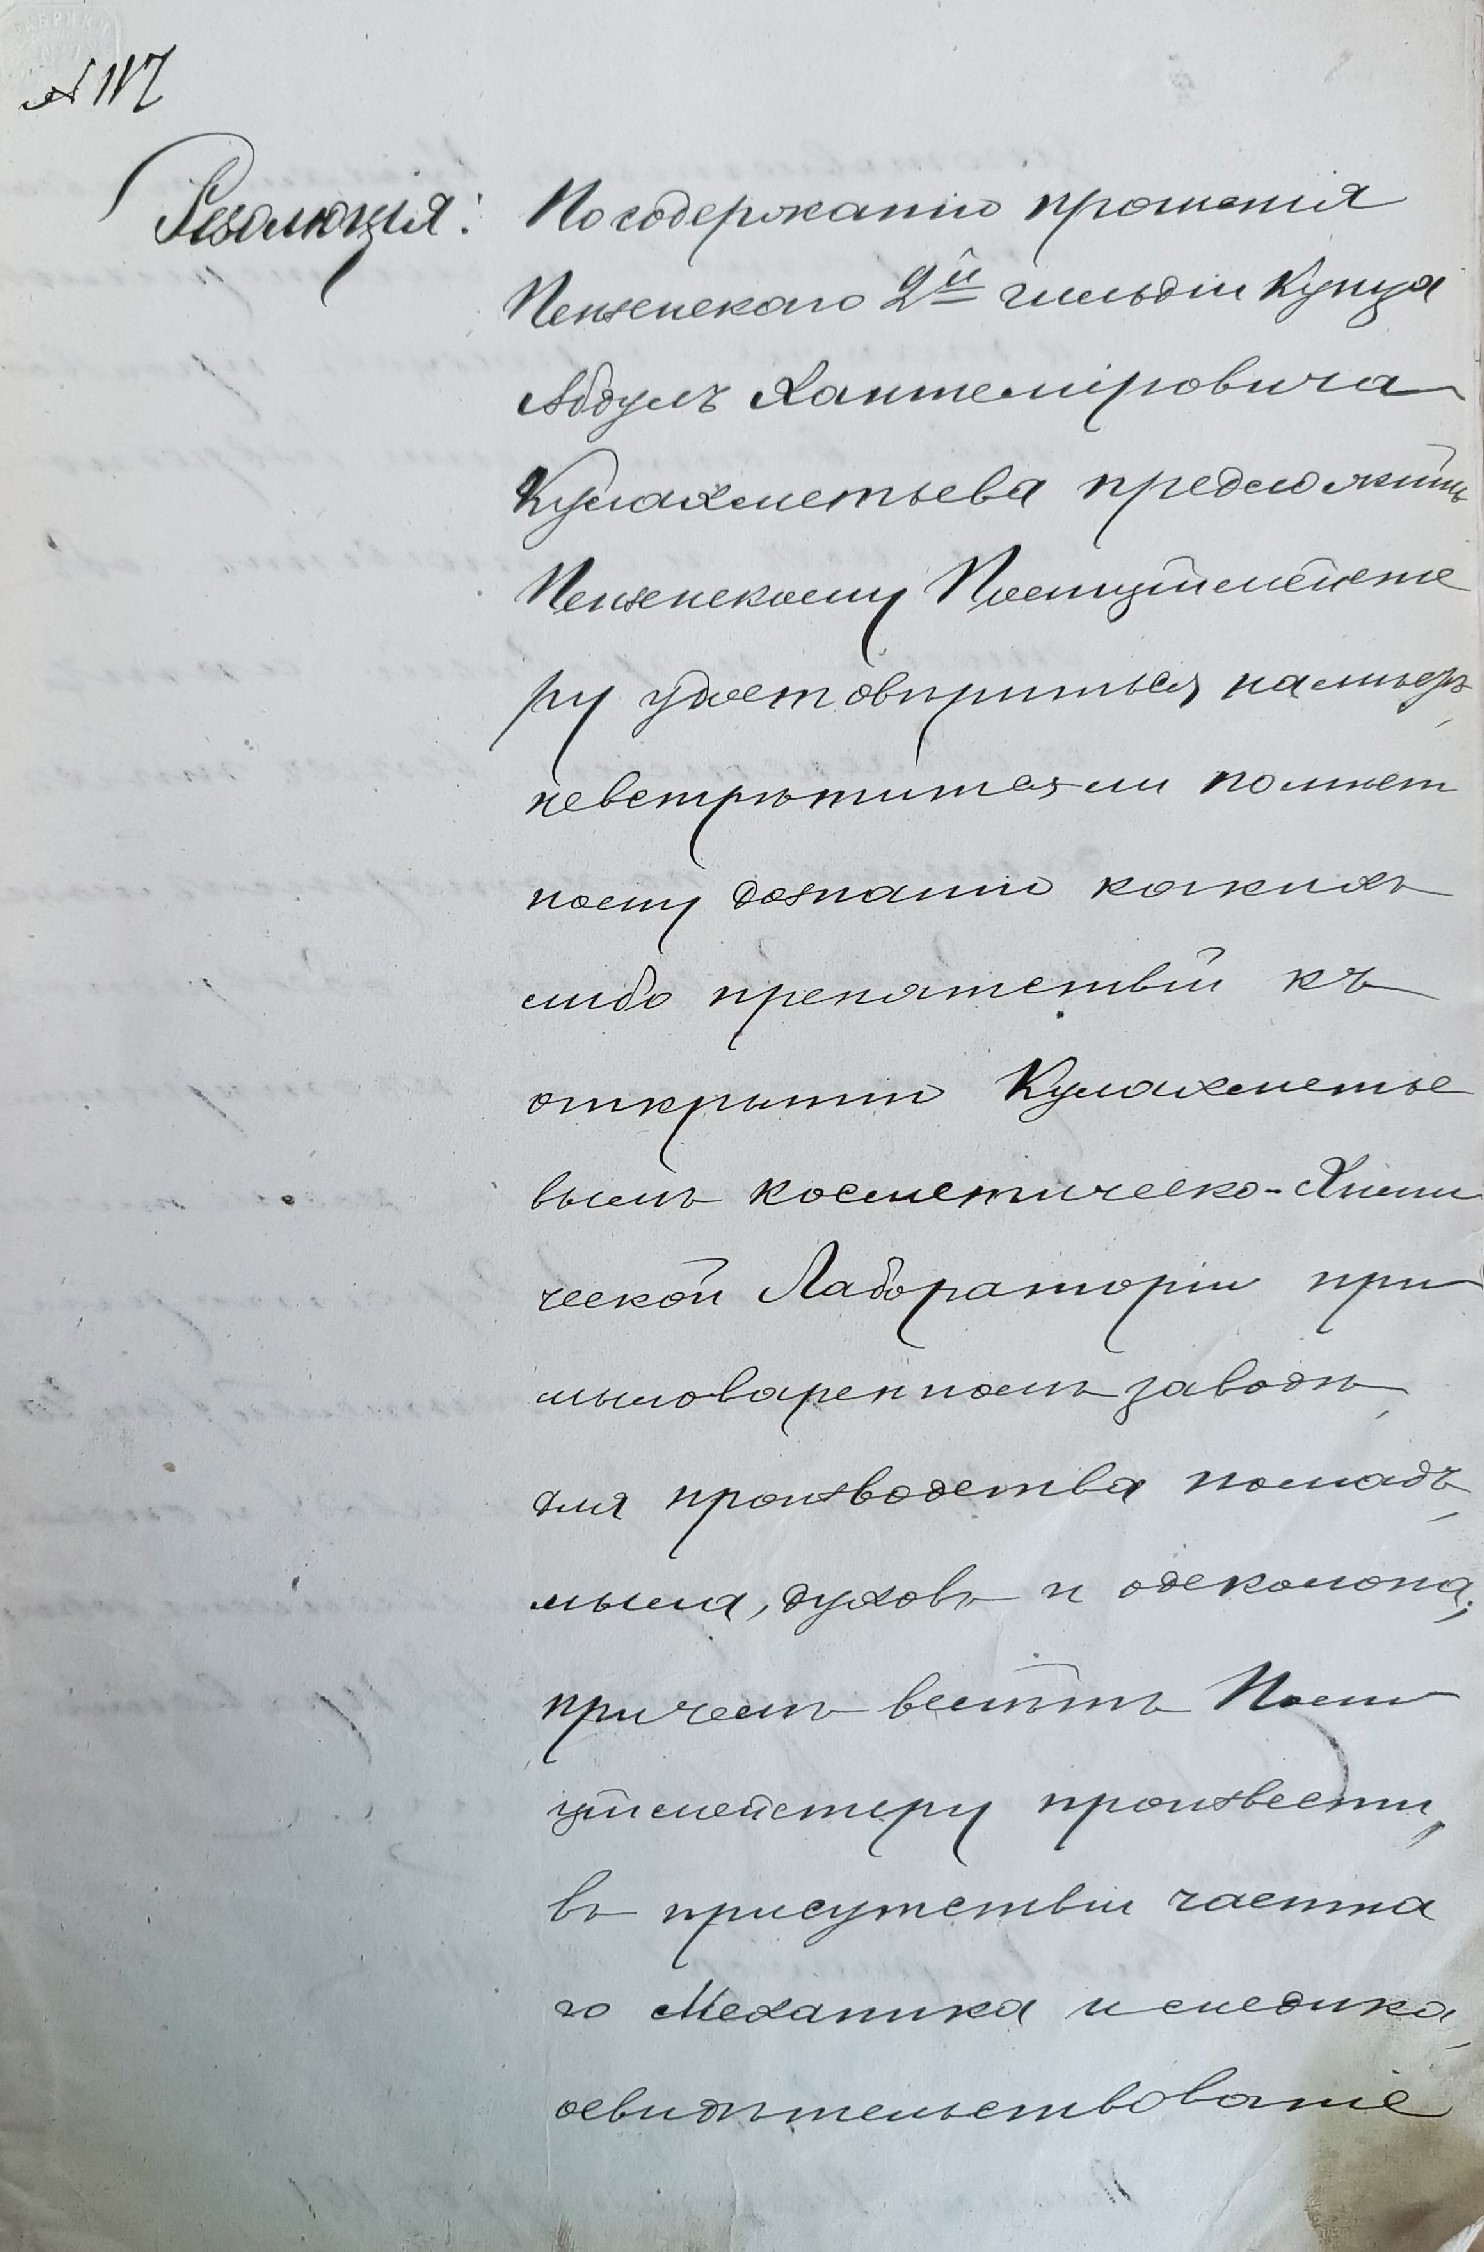 № 1117
Резолюція: По содержанію прошенія
Пензенскаго 2й гильдіи Купца
Абдулъ Хантеміровича
Кулахметьева предложить
Пензенскому Полицiймейсте
ру удостовѣриться, на мѣстѣ
невстрѣтится ли по мѣст
ному дознанію какихъ
либо препятствій къ
открытію Кулахметье
вымъ косметическо-Хими
ческой Лабораторіи при
мыловаренномъ заводѣ,
для производства помадъ,
мыла, духовъ и одеколона;
причемъ вмѣстѣ Поли
цiймейстеру произвести,
въ присутствіи частна
го Механика и медика,
освидѣтельствованіе